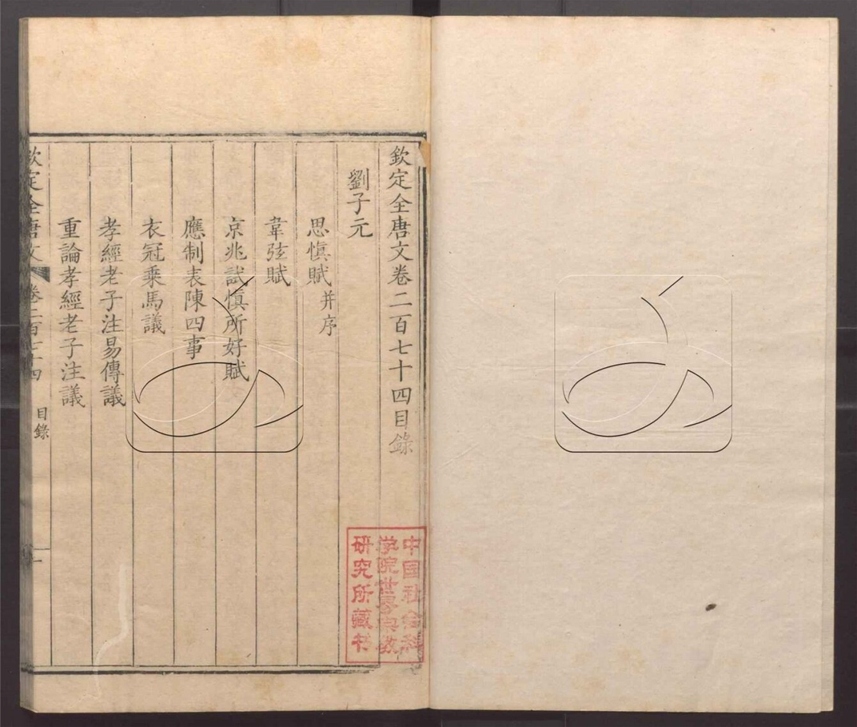 欽定全唐文卷二百七十四目錄
劉子元
思愼賦并序
韋弦賦
京兆試愼所好賦
應制表陳四事
衣冠乘馬議
孝經老子注易傳議
重論孝經老子注議
欽定全唐文 卷二百七十四 目錄 一
中国社会科
学院世界宗教
研究所藏书